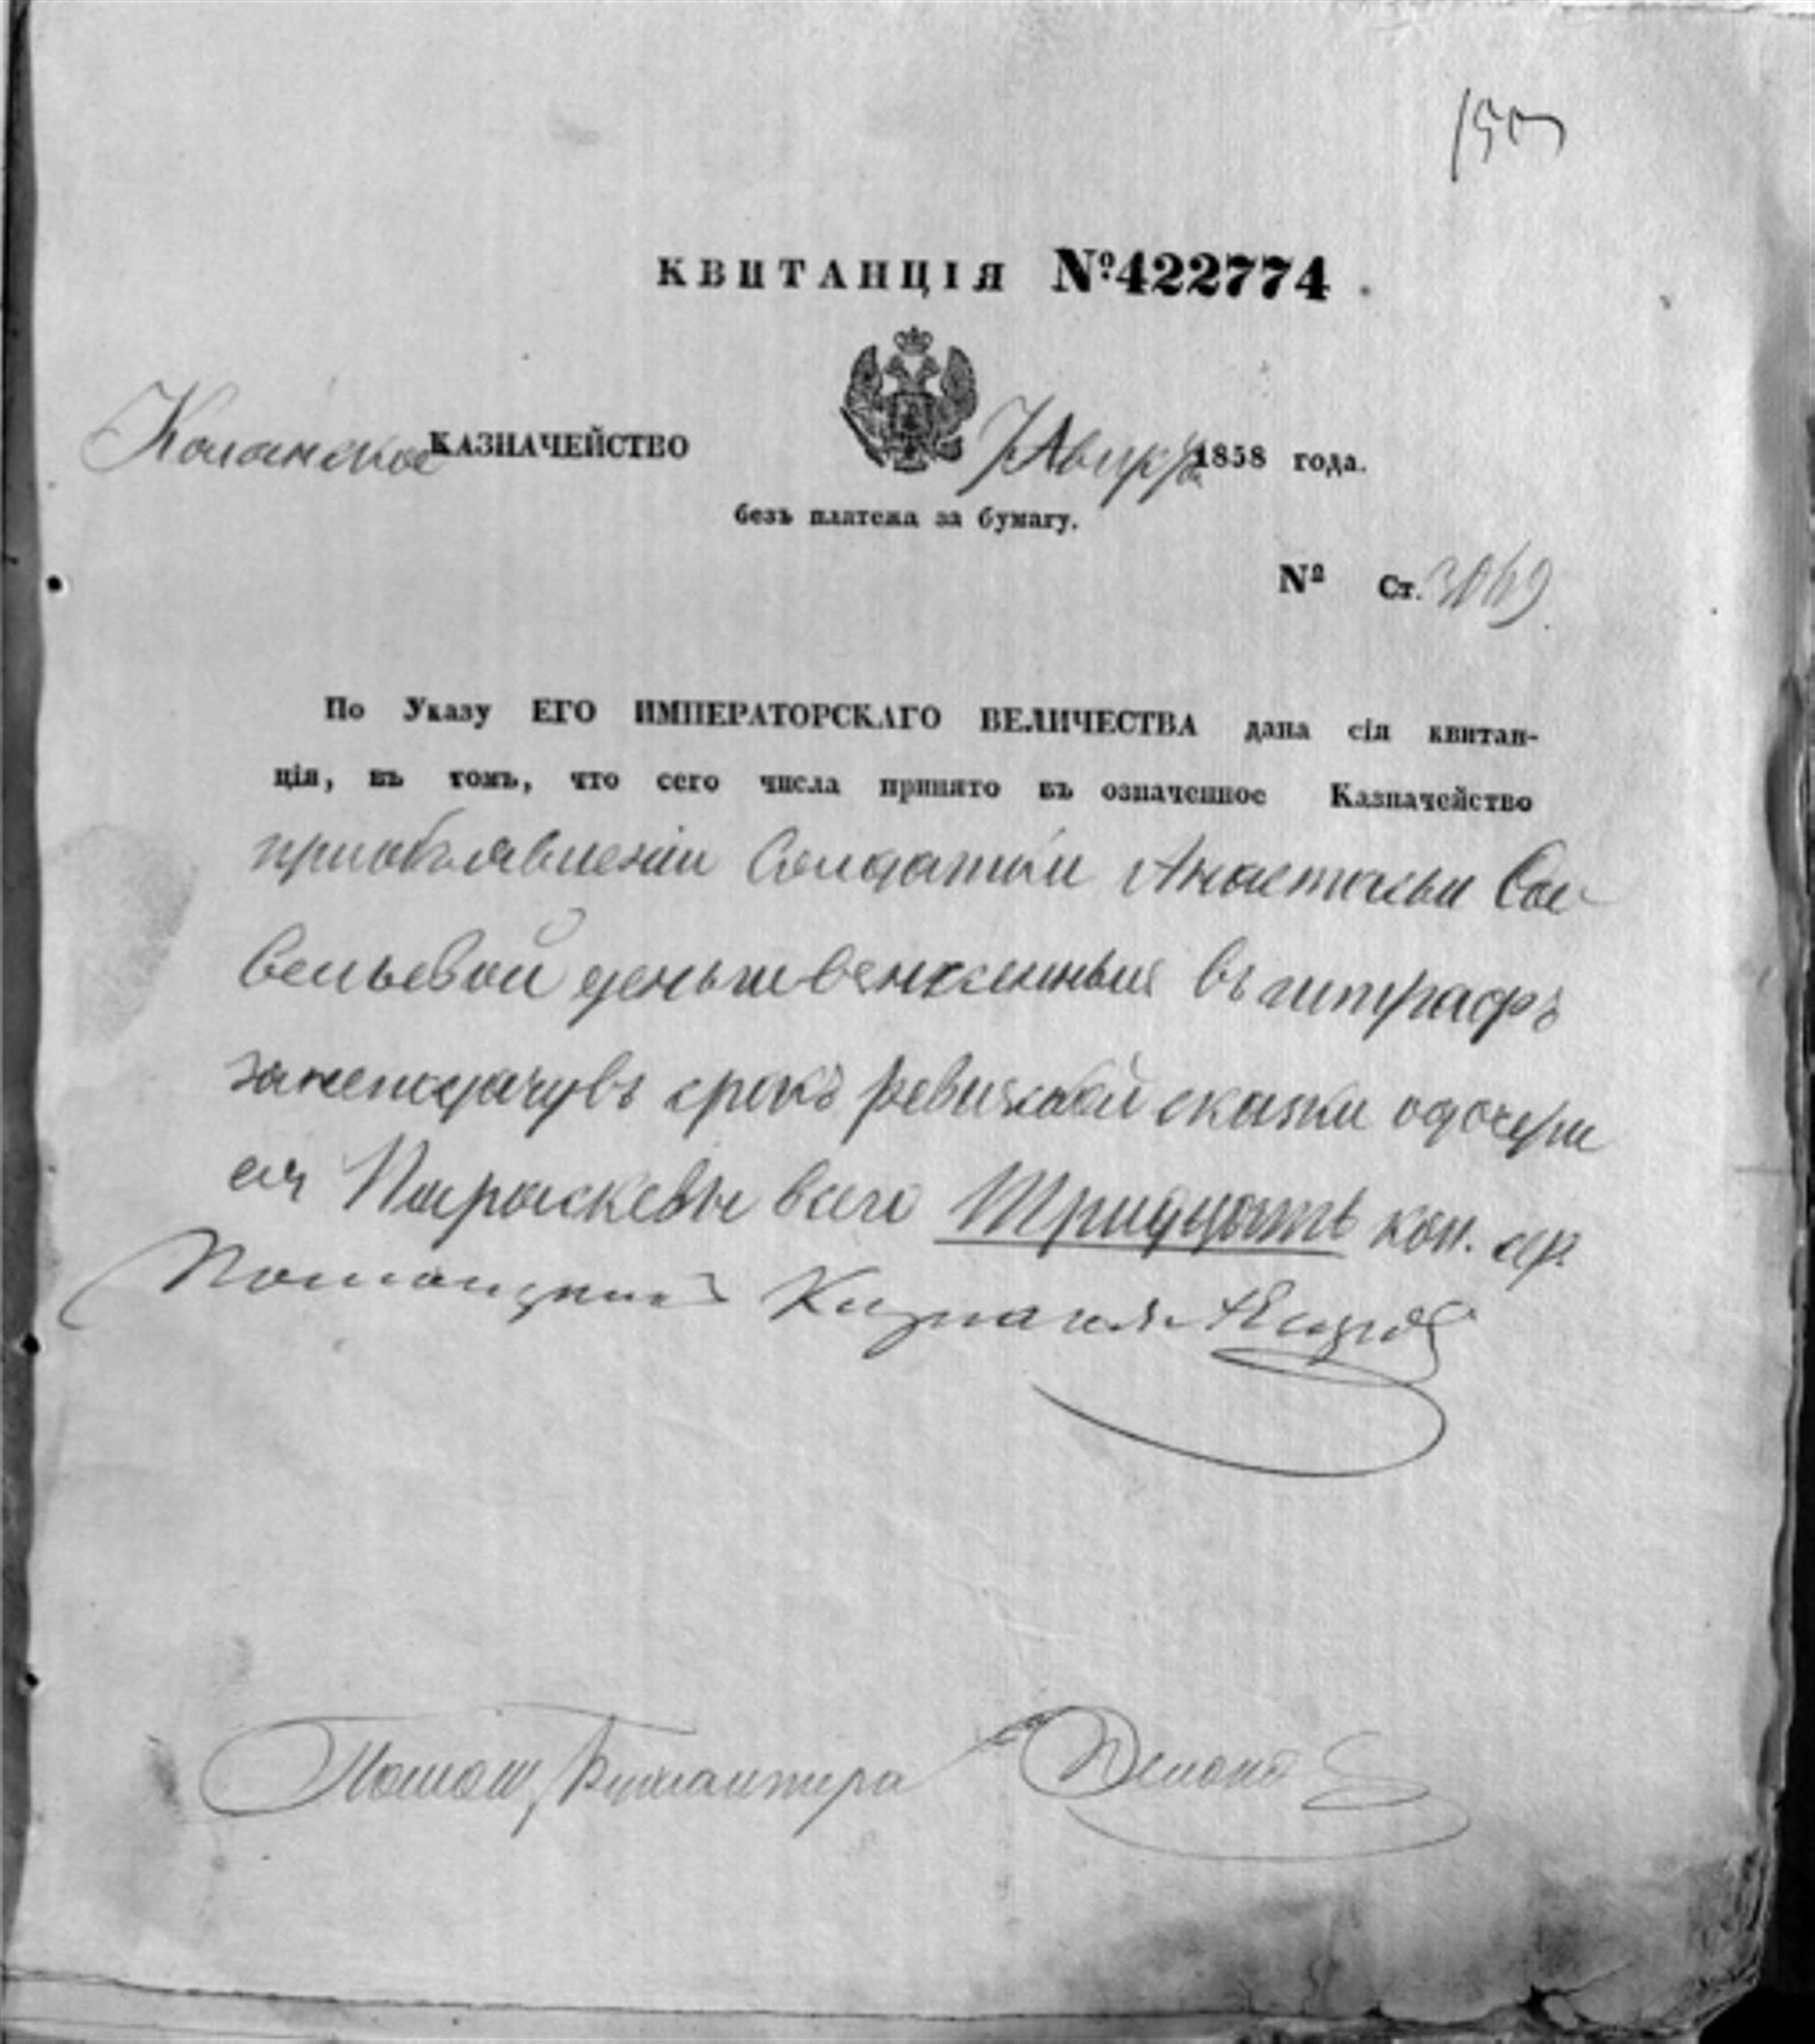 КВИТАНЦІЯ №422774
КАЗНАЧЕЙСТВО
1858 года.
безъ платежа за бумагу.
№ Ст. 3069
По Указу ЕГО ИМПЕРАТОРСКАГО ВЕЛИЧЕСТВА дана сія квитан-
ція, въ томъ, что сего числа принято въ означенное Казначейство
приобъявленіи Солдаткой Анастасьи Са-
вельевой деньги взысканныя въ штрафъ
занеподачувъ срокъ ревизской сказки одочери
ея Парасковьи всего Тридцать коп. сер.
Казначея
Помощ. Бухгалтера